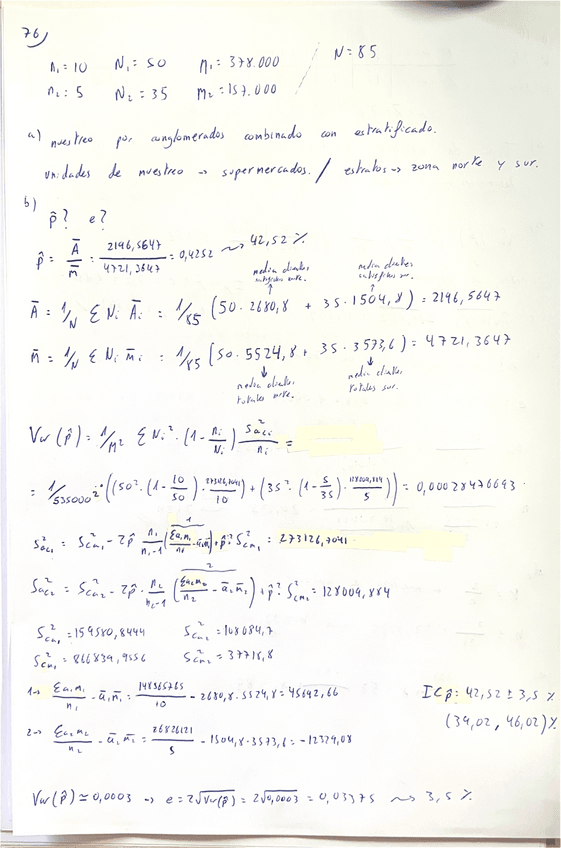 76)
n₁=10 N₁=50 M₁=378.000 / N=85
n₂=5 N₂=35 M₂=157.000
a) muestreo por conglomerados combinado con estratificado.
unidades de muestreo → supermercados. / estratos → zona norte y sur.
b)
p̂? e?
p̂ = Ā/m̄ = 2196,5647/4721,3647 = 0,4252 ⤳ 42,52 %
media clientes satisfechos norte.
media clientes satisfechos sur.
Ā = 1/N Σ Ni Āi = 1/85 (50·2680,8 + 35·1504,8) = 2196,5647
M̄ = 1/N Σ Ni m̄i = 1/85 (50·5524,8 + 35·3573,6) = 4721,3647
media clientes totales norte.
media clientes totales sur.
Var(p̂) = 1/M² Σ Ni² · (1 - ni/Ni) S²aci/ni =
= 1/535000² · ((50² · (1 - 10/50) · 273126,7041/10) + (35² · (1 - 5/35) · 128009,884/5)) = 0,00028476693.
S²ac₁ = S²ca₁ - 2p̂ · n₁/n₁-1 (Σa₁m₁/n₁ - ā₁m̄₁) + p̂² S²cm₁ = 273126,7041
S²ac₂ = S²ca₂ - 2p̂ · n₂/n₂-1 (Σa₂m₂/n₂ - ā₂m̄₂) + p̂² S²cm₂ = 128009,884
S²ca₁ = 159580,8444 S²ca₂ = 108084,7
S²cm₁ = 866839,9556 S²cm₂ = 37718,8
1→ Σa₁m₁/n₁ - ā₁m̄₁ = 148565765/10 - 2680,8·5524,8 = 45642,66
2→ Σa₂m₂/n₂ - ā₂m̄₂ = 26826121/5 - 1504,8·3573,6 = -12329,08
IC p̂ = 42,52 ± 3,5 %
(39,02, 46,02)%
Var(p̂) ≃ 0,0003 → e = 2√Var(p̂) = 2√0,0003 = 0,03375 ⤳ 3,5 %